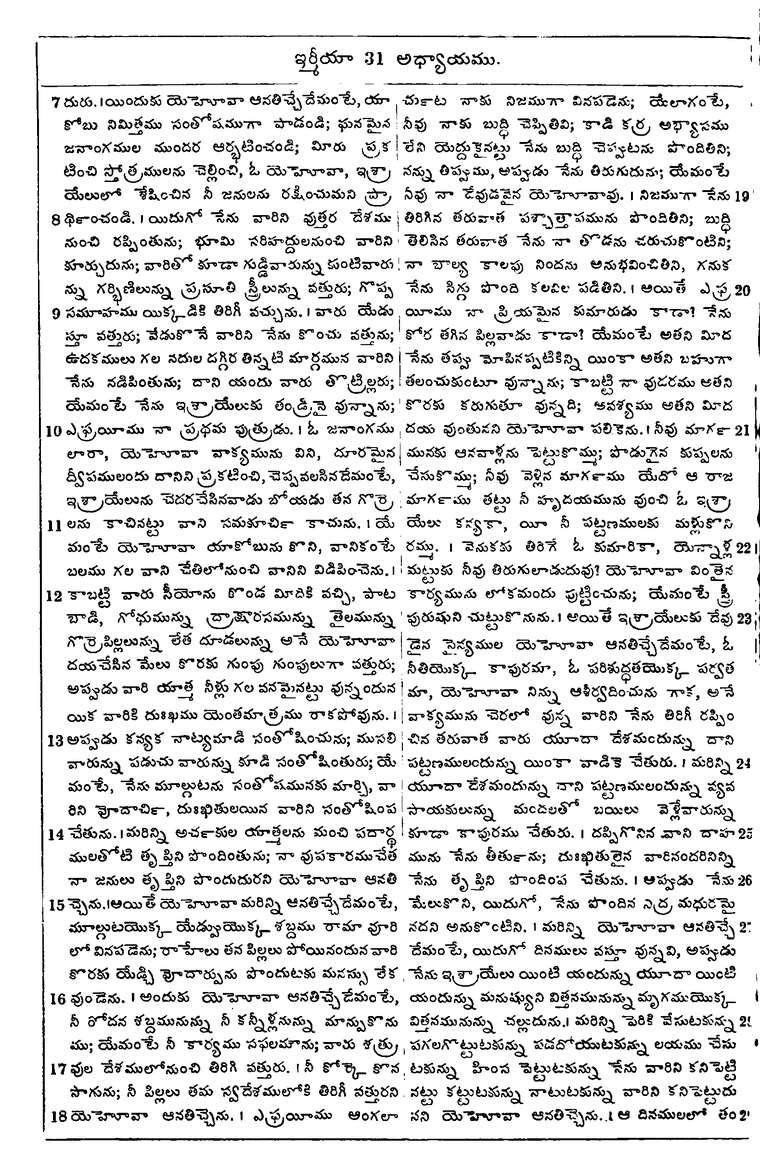 ఇర్మీయా 31 అధ్యాయము.
7 దురు. ।యిందుకు యెహెూవా ఆనతిచ్చేదేమంటే, యా
కోబు నిమిత్తము సంతోషముగా పాడండి; ఘనమైన
జనాంగముల ముందర ఆర్భటించండి; మీరు ప్రక
టించి స్తోత్రములను చెల్లించి, ఓ యెహెూవా, ఇశ్రా
యేలులో శేషించిన నీ జనులను రక్షించుమని ప్రా
8 థి౯ంచండి. । యిదుగో నేను వారిని వుత్తర దేశము
నుంచి రప్పింతును; భూమి సరిహద్దులనుంచి వారిని
కూర్చుదును; వారితో కూడా గుడ్డివారున్ను కుంటివారు
న్ను గర్భిణిలున్ను ప్రసూతి స్త్రీలున్ను వత్తురు; గొప్ప
9 సమూహము యిక్కడికి తిరిగీ వచ్చును. । వారు యేడు
స్తూ వత్తురు; వేడుకొనే వారిని నేను కొంచు వత్తును;
ఉదకములు గల నదుల దగ్గిర తిన్నటి మార్గమున వారిని
నేను నడిపింతును; దాని యందు వారు తొట్రిల్లరు;
యేమంటే నేను ఇశ్రాయేలుకు తండ్రినై వున్నాను;
10 ఎఫ్రయీము నా ప్రథమ పుత్రుడు. । ఓ జనాంగము
లారా, యెహెూవా వాక్యమును విని, దూరమైన
ద్వీపములందు దానిని ప్రకటించి, చెప్పవలసినదేమంటే,
ఇశ్రాయేలును చెదరచేసినవాడు బోయడు తన గొర్రె
11 లను కాచినట్టు వాని సమకూచి౯ కాచును. । యే
మంటే యెహెూవా యాకోబును కొని, వానికంటే
బలము గల వాని చేతిలోనుంచి వానిని విడిపించెను. ।
12 కాబట్టి వారు సీయోను కొండ మీదికి వచ్చి, పాట
బాడి, గోధుమున్ను ద్రాక్షారసమున్ను తైలమున్ను
గొర్రెపిల్లలున్ను లేత దూడలున్ను అనే యెహెూవా
దయచేసిన మేలు కొరకు గుంపు గుంపులుగా వత్తురు;
అప్పుడు వారి యాత్మ నీళ్లు గల వనమైనట్టు వున్నందున
యిక వారికి దుఃఖము యెంతమాత్రము రాకపోవును. ।
13 అప్పుడు కన్యక నాట్యమాడి సంతోషించును; ముసలి
వారున్ను పడుచు వారున్ను కూడి సంతోషింతురు; యే
మంటే, నేను మూల్గుటను సంతోషమునకు మార్చి, వా
రిని వోదాచి౯, దుఃఖితులయిన వారిని సంతోషింప
14 చేతును. ।మరిన్ని అచ౯కుల యాత్మలను మంచి పదార్థ
ములతోటి తృప్తిని పొందింతును; నా వుపకారముచేత
నా జనులు తృప్తిని పొందుదురని యెహెూవా ఆనతి
15 చ్చెను.।అయితే యెహెూవా మరిన్ని ఆనతిచ్చేదేమంటే,
మూల్గుటయొక్క యేడ్వుయొక్క శబ్దము రామా వూరి
లో వినపడెను; రాహేలు తన పిల్లలు పోయినందున వారి
కొరకు యేడ్చి వోదార్పును పొందుటకు మనస్సు లేక
16 వుండెను. । అందుకు యెహెూవా ఆనతిచ్చేదేమంటే,
నీ రోదన శబ్దమునున్ను నీ కన్నీళ్లనున్ను మాన్పుకొను
ము; యేమంటే నీ కార్యము సఫలమాను; వారు శత్రు
17 వుల దేశములోనుంచి తిరిగి వత్తురు. । నీ కోర్కె కొన
సాగును; నీ పిల్లలు తమ స్వదేశములోకి తిరిగీ వత్తురని
18 యెహెూవా ఆనతిచ్చెను. । ఎఫ్రయీము అంగలా
చు౯ట నాకు నిజముగా వినపడెను; యేలాగంటే,
నీవు నాకు బుద్ధి చెప్పితివి; కాడి కర్ర అభ్యాసము
లేని యెద్దుకైనట్టు నేను బుద్ధి చెప్పుటను పొందితిని;
నన్ను తిప్పుము, అప్పుడు నేను తిరుగుదును; యేమంటే
నీవు నా దేవుడవైన యెహెూవావు. । నిజముగా నేను 19
తిరిగిన తరువాత పశ్చాత్తాపమును పొందితిని; బుద్ధి
తెలిసిన తరువాత నేను నా తొడను చరుచుకొంటిని;
నా బాల్య కాలపు నిందను అనుభవించితిని, గనుక
నేను సిగ్గు పొంది కలవిల పడితిని. । అయితే ఎఫ్ర 20
యీము నా ప్రియమైన కుమారుడు కాడా? నేను
కోర తగిన పిల్లవాడు కాడా? యేమంటే అతని మీద
నేను తప్పు మోపినప్పటికిన్ని యింకా అతని బహుగా
తలంచుకుంటూ వున్నాను; కాబట్టి నా వుదరము అతని
కొరకు కరుగుతూ వున్నది; అవశ్యము అతని మీద
దయ వుంతునని యెహెూవా పలికెను. । నీవు మాగ౯ 21
మునకు ఆనవాళ్లను పెట్టుకొమ్ము; పొడుగైన కుప్పలను
చేసుకొమ్ము; నీవు వెళ్లిన మాగ౯ము యేదో ఆ రాజ
మాగ౯ము తట్టు నీ హృదయమును వుంచి ఓ ఇశ్రా
యేలు కన్యకా, యీ నీ పట్టణములకు మళ్లుకొని
రమ్ము. । వెనుకకు తిరిగే ఓ కుమారికా, యెన్నాళ్ల 22
మట్టుకు నీవు తిరుగులాడుదువు? యెహెూవా వింతైన
కార్యమును లోకమందు పుట్టించును; యేమంటే స్త్రీ
పురుషుని చుట్టుకొనును. । అయితే ఇశ్రాయేలుకు దేవు 23
డైన సైన్యముల యెహెూవా ఆనతిచ్చేదేమంటే, ఓ
నీతియొక్క కాపురమా, ఓ పరిశుద్ధతయొక్క పర్వత
మా, యెహెూవా నిన్ను ఆశీర్వదించును గాక, అనే
వాక్యమును చెరలో వున్న వారిని నేను తిరిగీ రప్పిం
చిన తరువాత వారు యూదా దేశమందున్ను దాని
పట్టణములందున్ను యింకా వాడికె చేతురు. । మరిన్ని 24
యూదా దేశమందున్ను దాని పట్టణములందున్ను వ్యవ
సాయకులున్ను మందలతో బయిలు వెళ్లేవారున్ను
కూడా కాపురము చేతురు. । దప్పిగొనిన వాని దాహ 25
మును నేను తీతు౯ను; దుఃఖితులైన వారినందరినిన్ని
నేను తృప్తిని పొందింప చేతును. । అప్పుడు నేను 26
మేలుకొని, యిదుగో, నేను పొందిన నిద్ర మధురమై
నదని అనుకొంటిని. । మరిన్ని యెహెూవా ఆనతిచ్చే 2
దేమంటే, యిదుగో దినములు వస్తూ వున్నవి, అప్పుడు
నేను ఇశ్రాయేలు యింటి యందున్ను యూదా యింటి
యందున్ను మనుష్యుని విత్తనమునున్ను మృగముయొక్క
విత్తనమునున్ను చల్లుదును.। మరిన్ని పెరికి వేసుటకున్ను 2
పగలగొట్టుటకున్ను పడదోయుటకున్ను లయము చేసు
టకున్ను హింస పెట్టుటకున్ను నేను వారిని కనిపెట్టి
నట్టు కట్టుటకున్ను నాటుటకున్ను వారిని కనిపెట్టుదు
నని యెహెూవా ఆనతిచ్చెను. । ఆ దినములలో తం 2